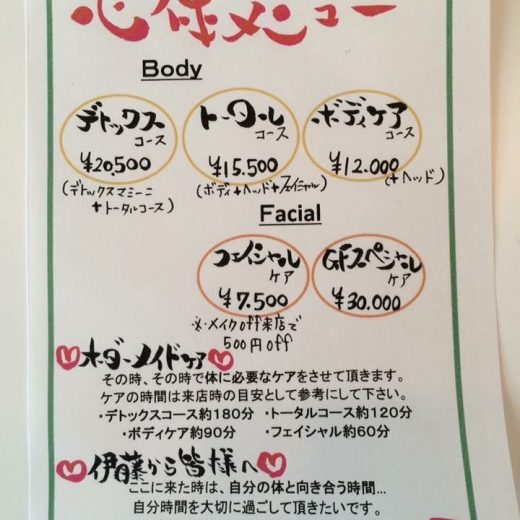 心保メニュー
Body
デトックス
コース
¥20,500
(デトックスマミーニ
+トータルコース)
トータル
コース
¥15.500
(ボディ+ヘッド+フェイシャル)
ボディケア
コース
¥12.000
(+ヘッド)
Facial
フェイシャル
ケア
¥7.500
※メイクoff来店で
500円off
GFスペシャル
ケア
¥30.000
オーダーメイドケア
その時、その時で体に必要なケアをさせて頂きます。
ケアの時間は来店時の目安として参考にして下さい。
・デトックスコース約180分 ・トータルコース約120分
・ボディケア約90分 ・フェイシャル約60分
伊藤から皆様へ
ここに来た時は、自分の体と向き合う時間…
自分時間を大切に過ごして頂きたいです。